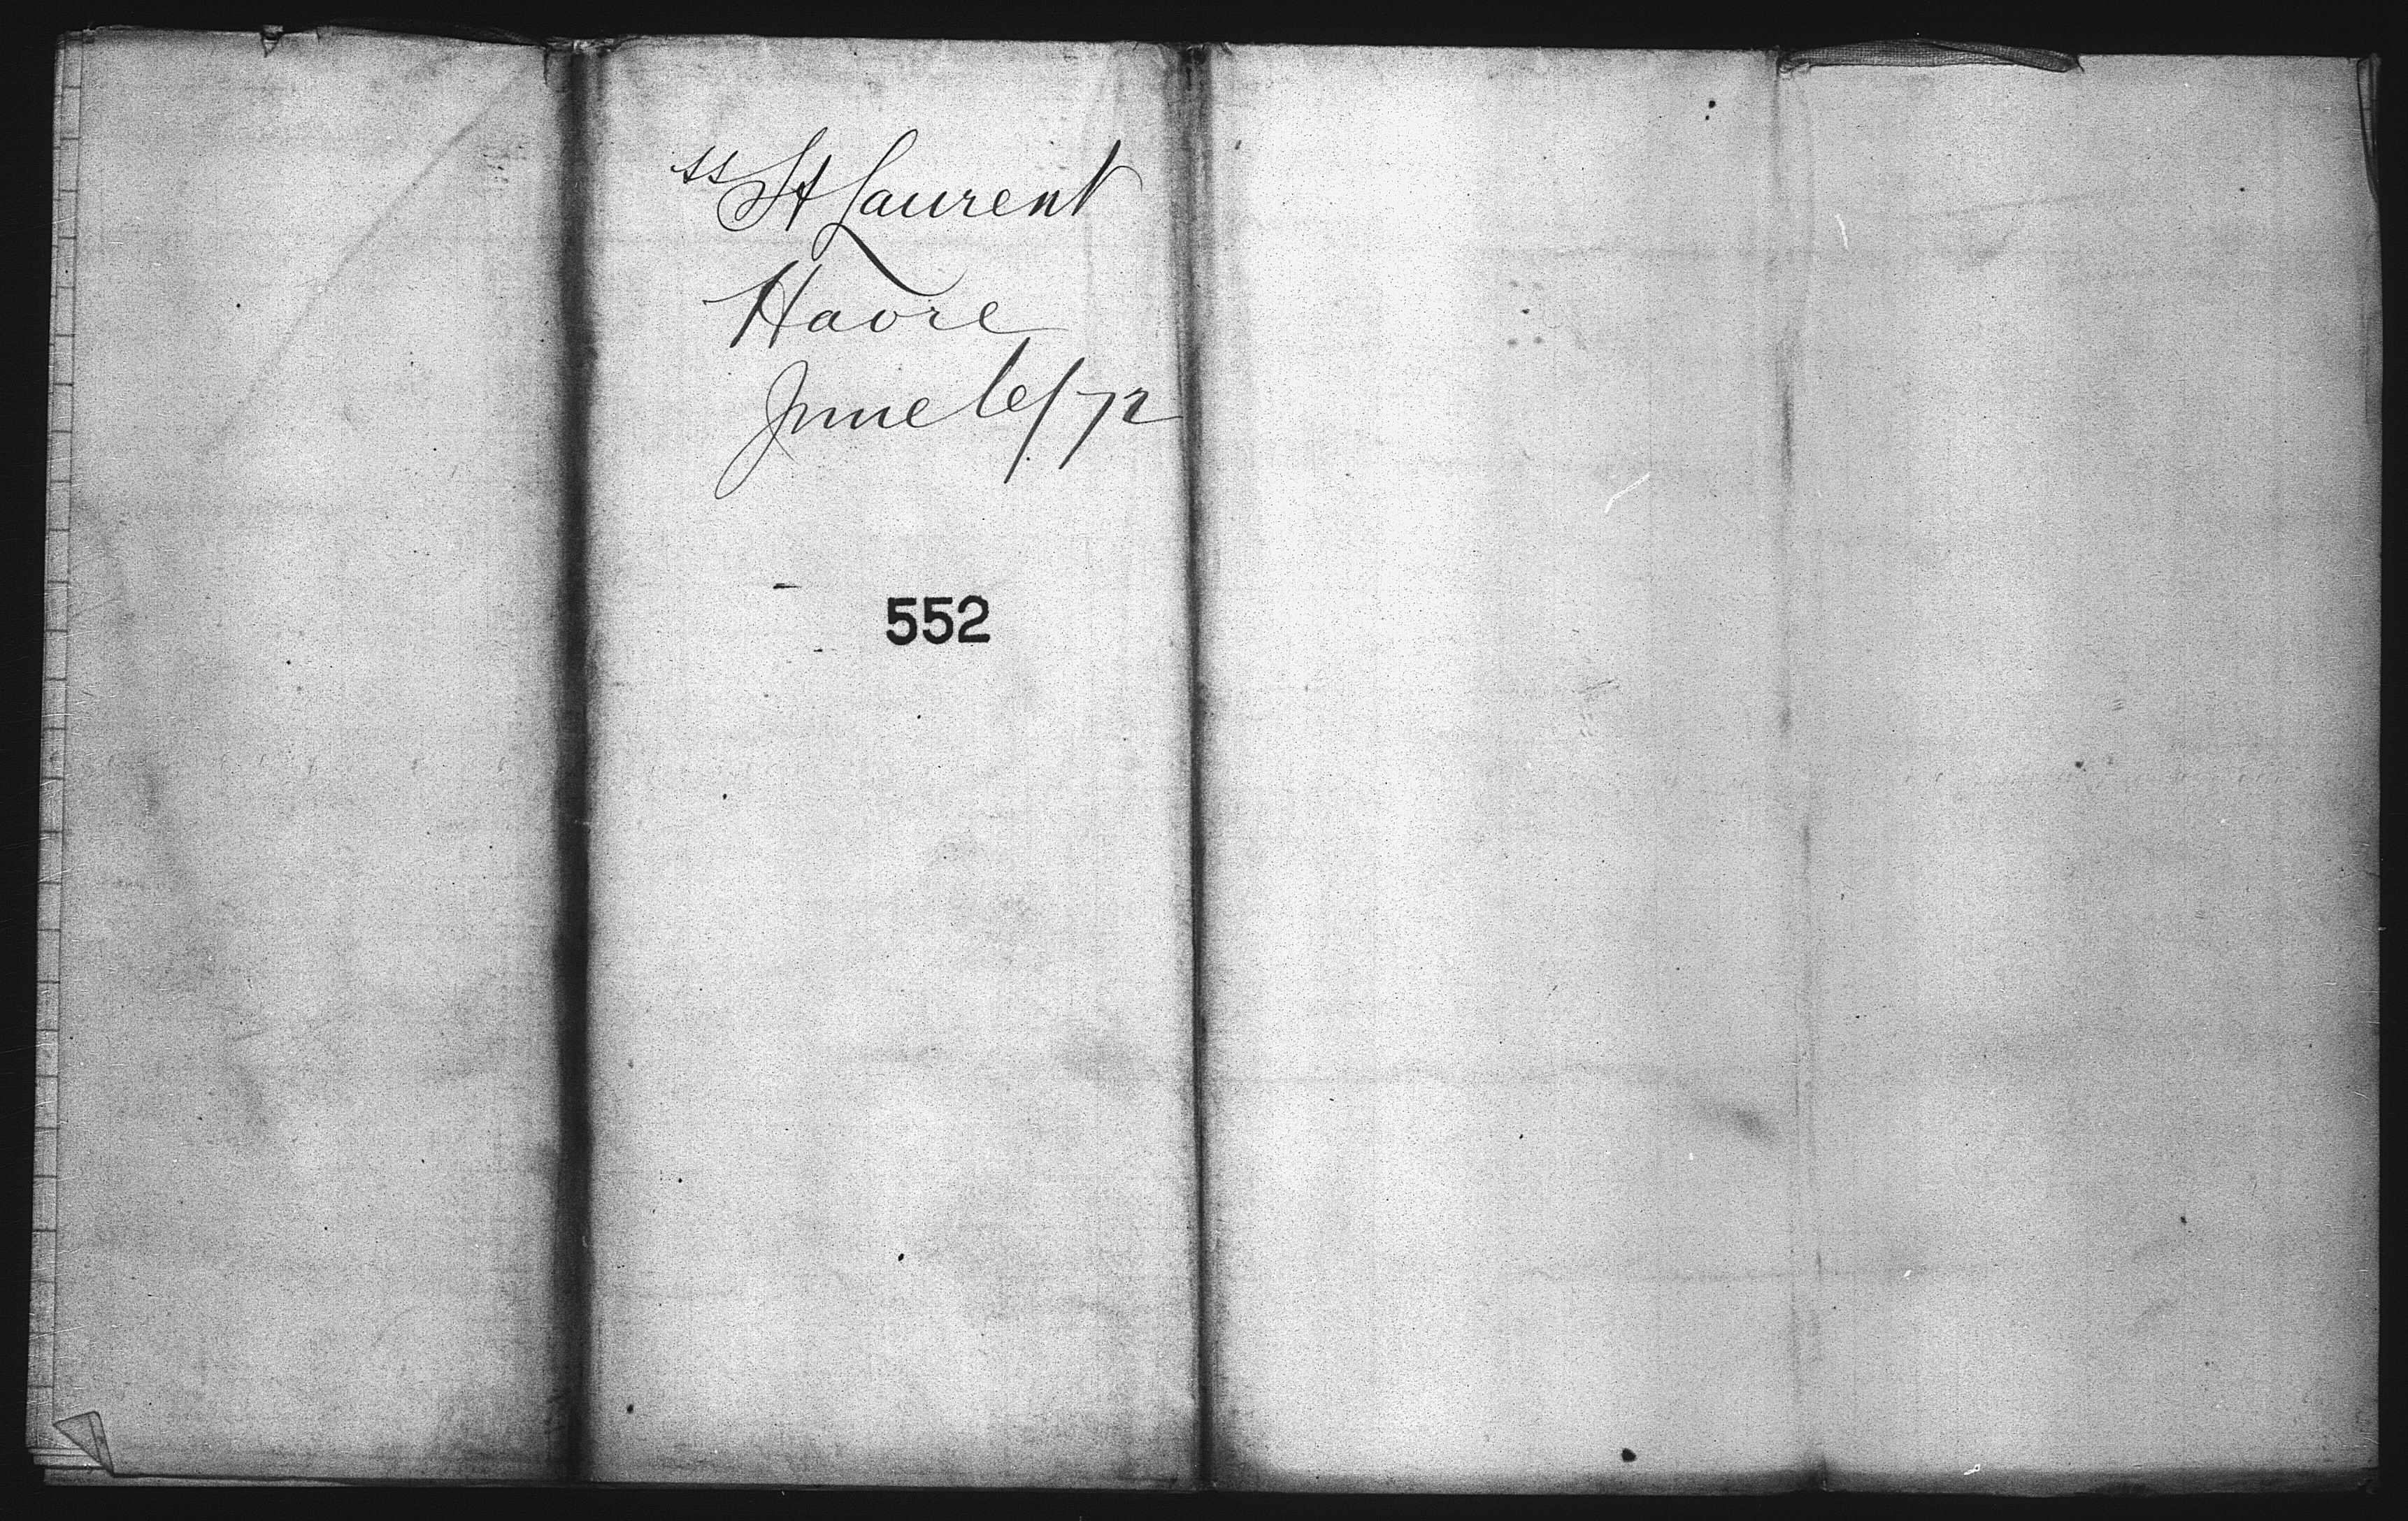 ss St Laurent
Havre
June 6/72
552